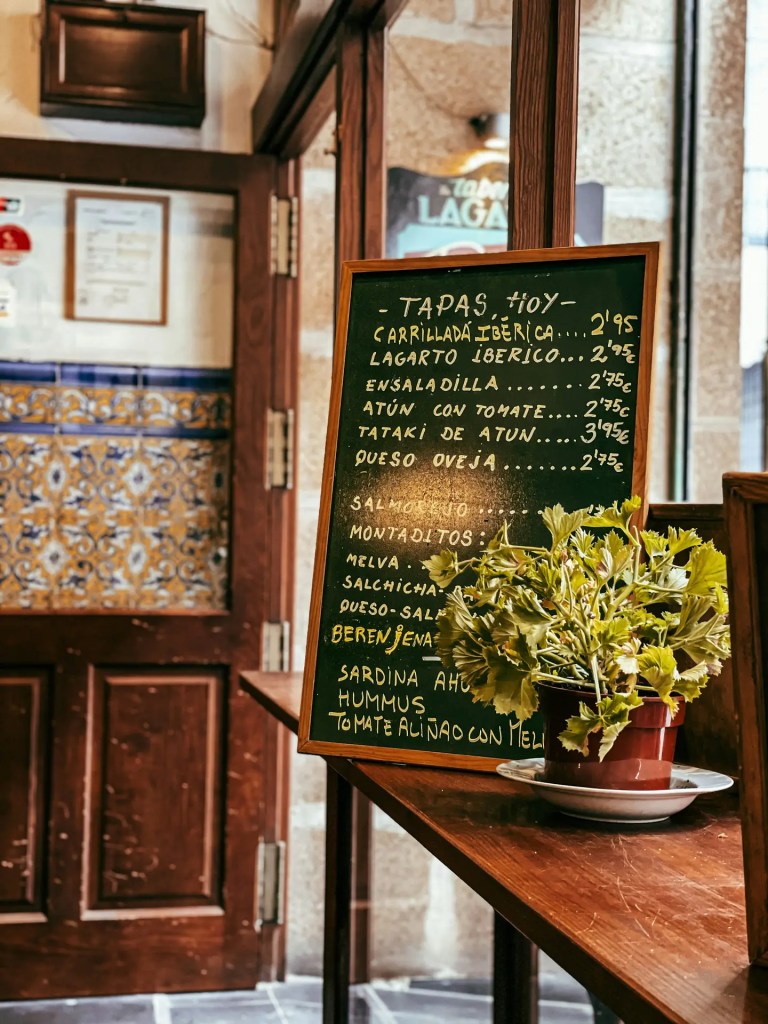 LAGA
- TAPAS, HOY -
CARRILLADA IBÉRICA.... 2'95
LAGARTO IBERICO... 2'95€
ENSALADILLA ....... 2'75€
ATÚN CON TOMATE.... 2'75€
TATAKI DE ATUN..... 3'95€
QUESO OVEJA ....... 2'75€
SALMOREJO ......
MONTADITOS:
MELVA.
SALCHICHA-
QUESO-SAL
BERENJENA
SARDINA AHU
HUMMUS
TOMATE ALIÑAO CON MEL